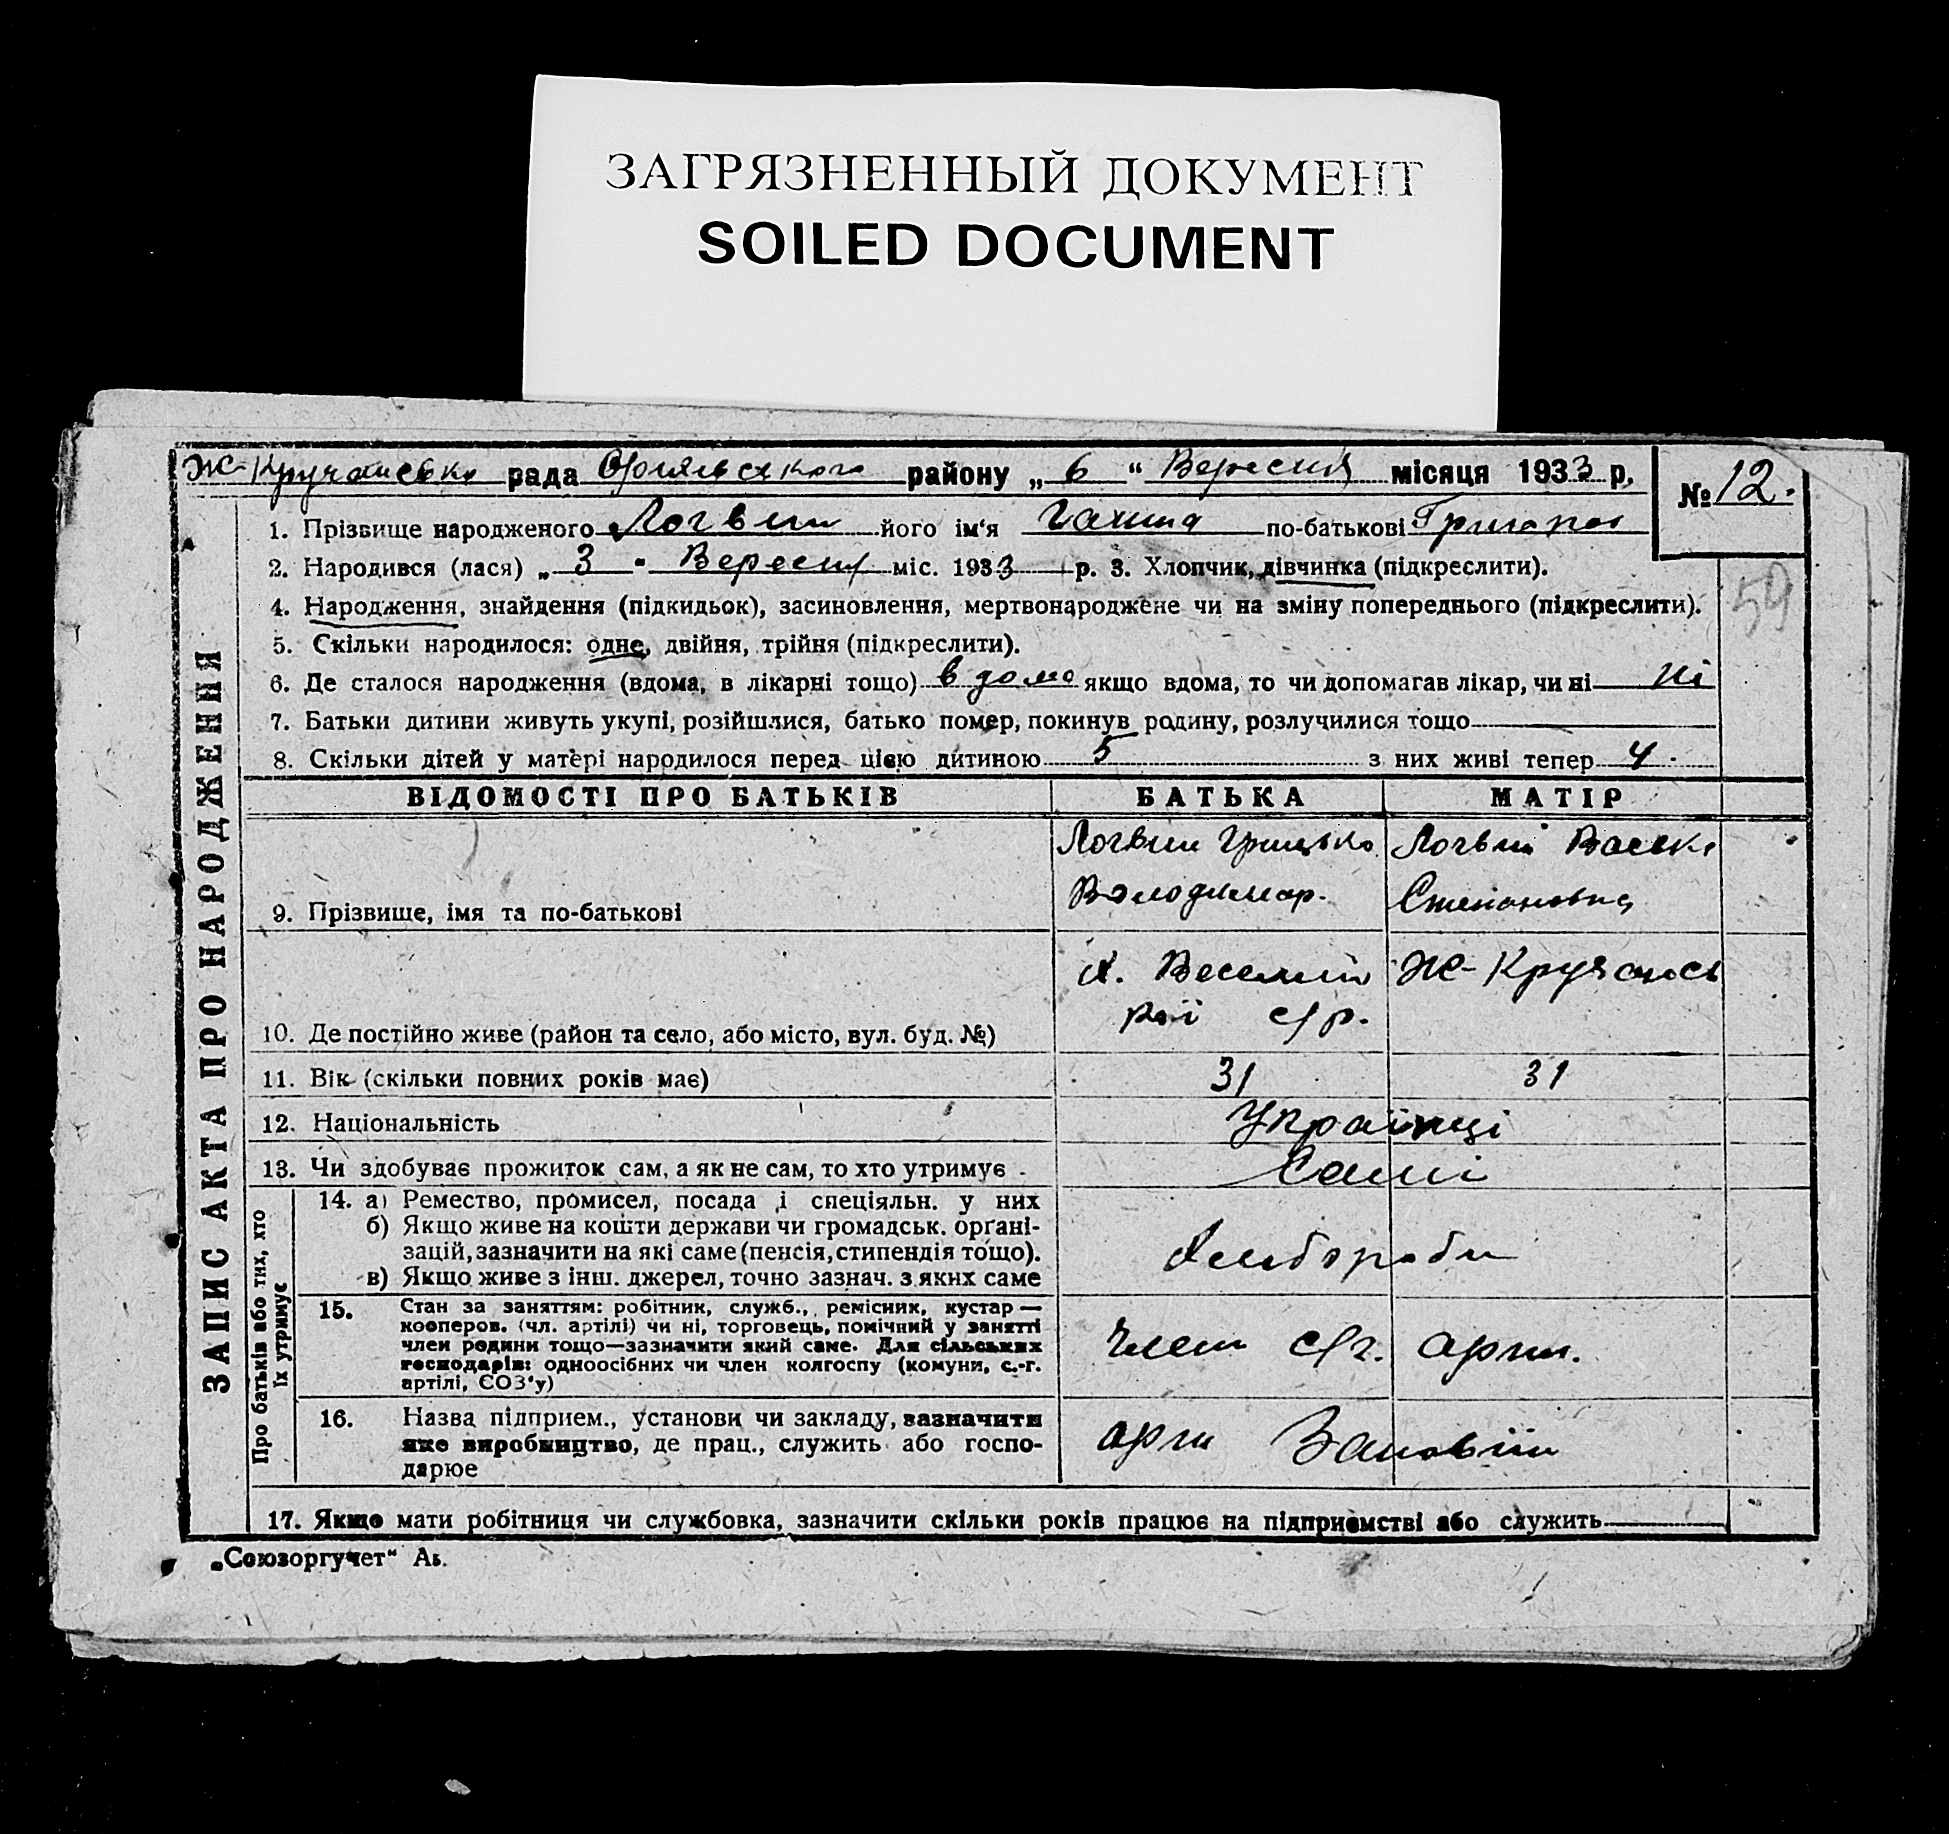 ЗАГРЯЗНЕННЫЙ ДОКУМЕНТ
SOILED DOCUMENT
рада району „ 6 “ Вересня місяця 1933 р.
№ 12.
1. Прізвище народженого Логвин його ім‘я Ганна по-батькові
2. Народився (лася) „ 3 " Вересня міс. 1933 р. 3. Хлопчик, дівчинка (підкреслити).
59
4. Народження, знайдення (підкидьок), засиновлення, мертвонароджене чи на зміну попереднього (підкреслити).
5. Скільки народилося: одне, двійня, трійня (підкреслити).
6. Де сталося народження (вдома, в лікарні тощо) в дома якщо вдома, то чи допомагав лікар, чи ні ні
7. Батьки дитини живуть укупі, розійшлися, батько помер, покинув родину, розлучилися тощо
8. Скільки дітей у матері народилося перед цією дитиною 5 з них живі тепер 4.
ЗАПИС АКТА ПРО НАРОДЖЕННЯ
ВІДОМОСТІ ПРО БАТЬКІВ БАТЬКА МАТІР
Логвин Грицько Логвин
Володимир. Степановна
9. Прізвище, імя та по-батькові
х. Веселий
Рай с/р.
10. Де постійно живе (район та село, або місто, вул. буд. №)
11. Вік (скільки повних років має) 31 31
12. Національність Українці
13. Чи здобуває прожиток сам, а як не сам, то хто утримує Самі
Про батьків або тих, хто
їх утримує
14. а) Ремество, промисел, посада і спеціяльн. у них
б) Якщо живе на кошти держави чи громадськ. орґані-
зацій, зазначити на які саме (пенсія, стипендія тощо).
Хлібороби
в) Якщо живе з інш. джерел, точно зазнач. з яких саме
15. Стан за заняттям: робітник, служб., ремісник, кустар —
кооперов. (чл. артілі) чи ні, торговець, помічний у занятті
член родини тощо—зазначити який саме. Для сільських
господарів: одноосібних чи член колгоспу (комуни, с.-г.
артілі, СОЗ‘у)
член с/г. арт.
16. Назва підприєм., установи чи закладу, зазначити
яке виробництво, де прац., служить або госпо-
дарюе
арт
17. Якщо мати робітниця чи службовка, зазначити скільки років працює на підприємстві або служить
„Союзоргучет“ Аз.